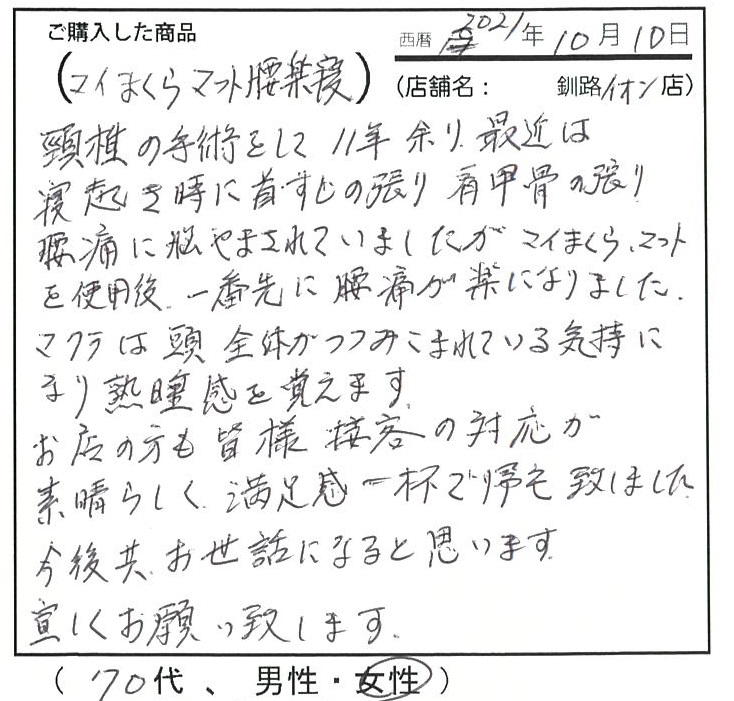 ご購入した商品
西暦 2021年10月10日
(マイまくら マット腰楽寝)
(店舗名: 釧路イオン店)
頸椎の手術をして 11年余り 最近は
寝起き時に首すじの張り 肩甲骨の張り
腰痛に悩やまされていましたが マイまくら、マット
を使用後、一番先に腰痛が楽になりました.
マクラは頭全体がつつみこまれている気持に
なり熟睡感を覚えます.
お店の方も皆様 接客の対応が
素晴らしく、満足感一杯で帰宅致しました
今後共、お世話になると思います.
宜しくお願い致します.
(70代、男性・女性)